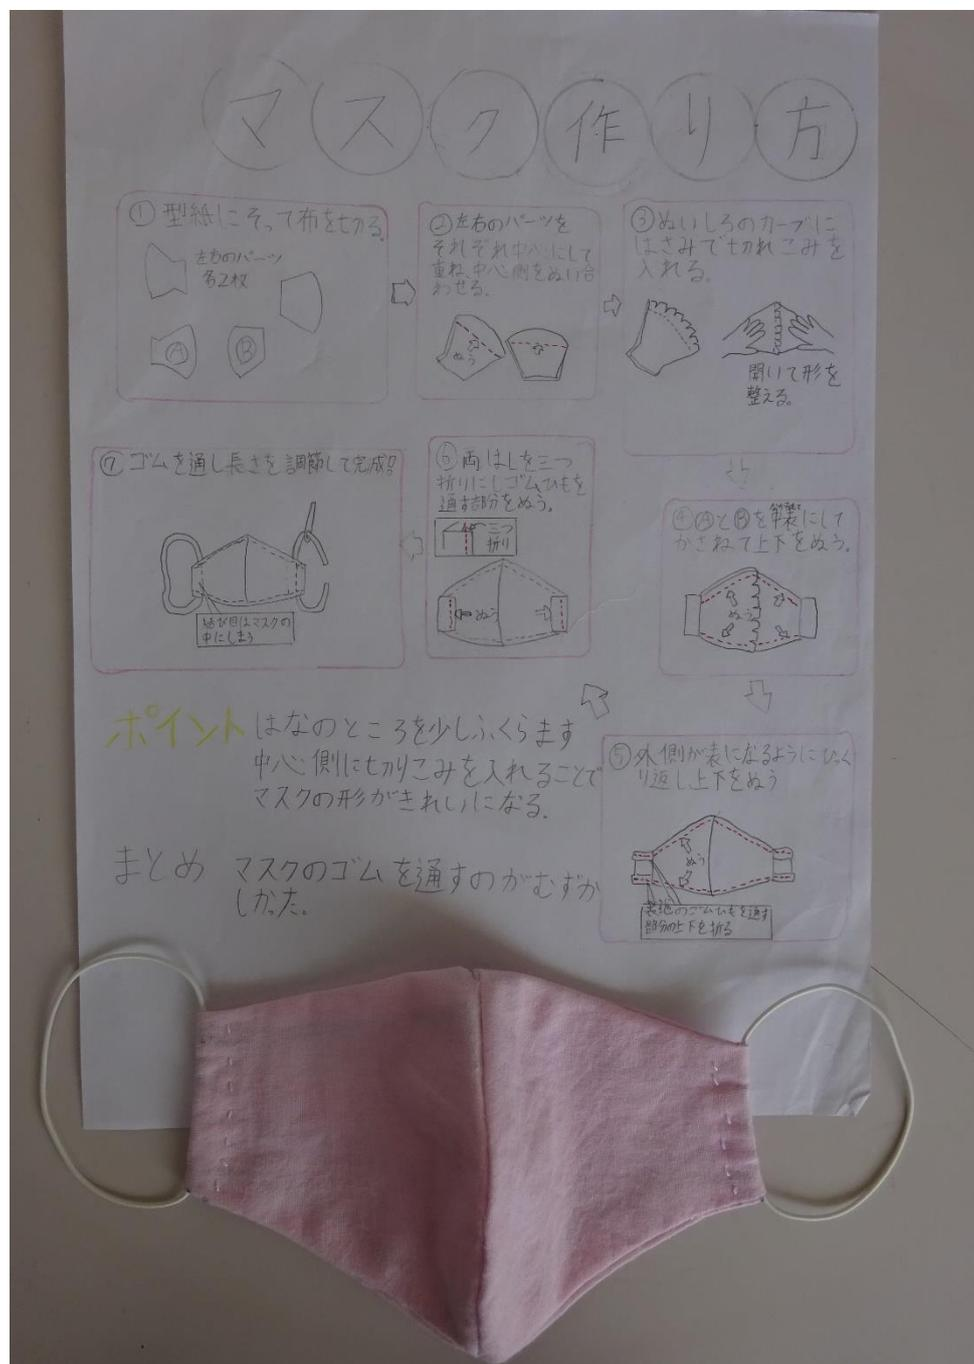 マスク作り方
①型紙にそって布を切る。
左右のパーツ
各2枚
A
B
②左右のパーツを
それぞれ中心にして
重ね、中心側をぬい合
わせる。
ぬう
③ぬいしろのカーブに
はさみで切れこみを
入れる。
開いて形を
整える。
④ⒶとⒷを
にして
かさねて上下をぬう。
ぬう
⑤外側が表になるようにひっく
り返し上下をぬう
ぬう
のゴムひもを通す
部分の上下を折る
⑥両はしを三つ
折りにしゴムひもを
通す部分をぬう。
三つ
折り
ぬう
⑦ゴムを通し長さを調節して完成!!
結び目はマスクの
中にしまう
ポイント はなのところを少しふくらます
中心側に切りこみを入れることで
マスクの形がきれいになる.
まとめ マスクのゴムを通すのがむずか
しかった。